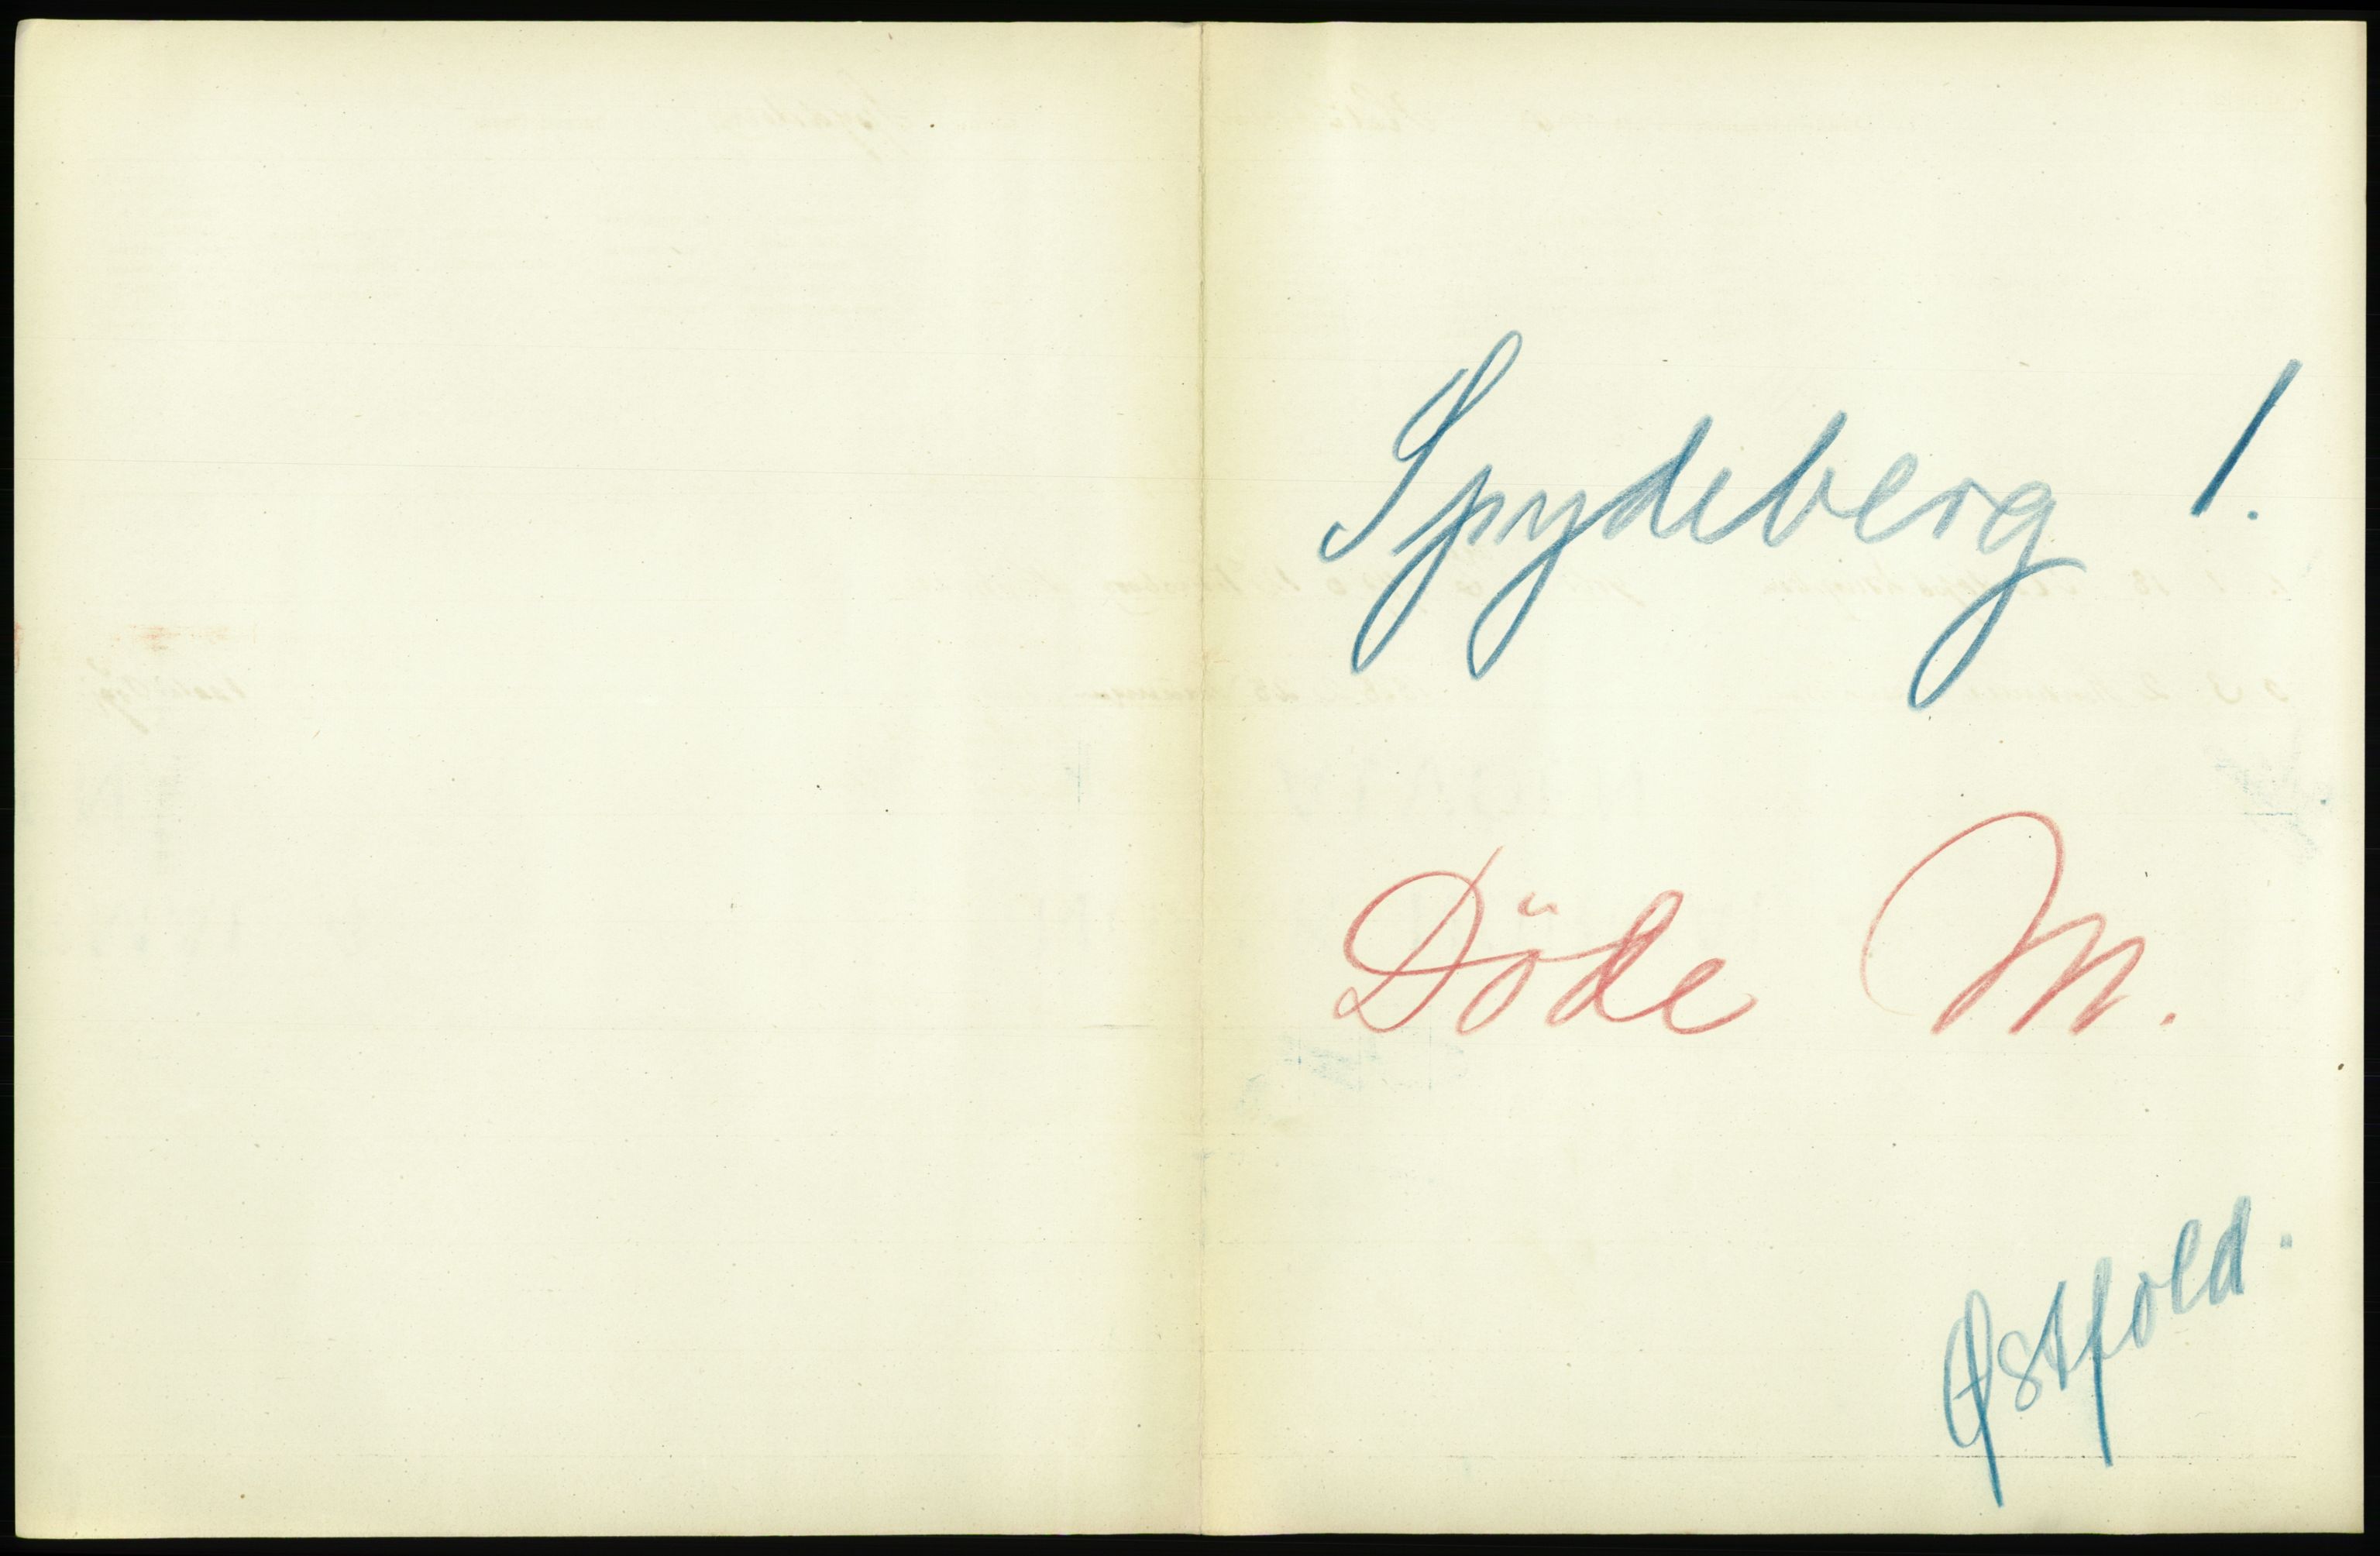 Spydeberg 1.
Döde M.
Østfold.